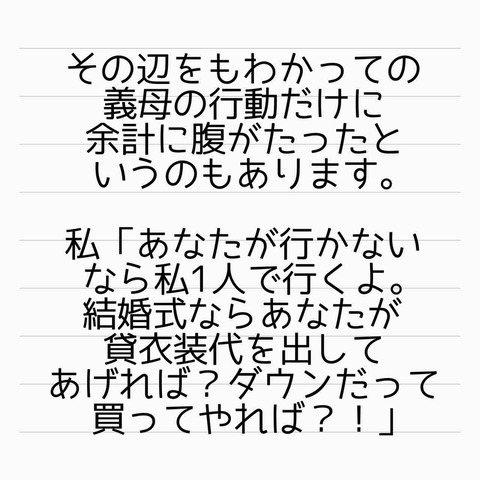 その辺をもわかっての
義母の行動だけに
余計に腹がたったと
いうのもあります。
私「あなたが行かない
なら私1人で行くよ。
結婚式ならあなたが
貸衣装代を出して
あげれば？ダウンだって
買ってやれば？！」